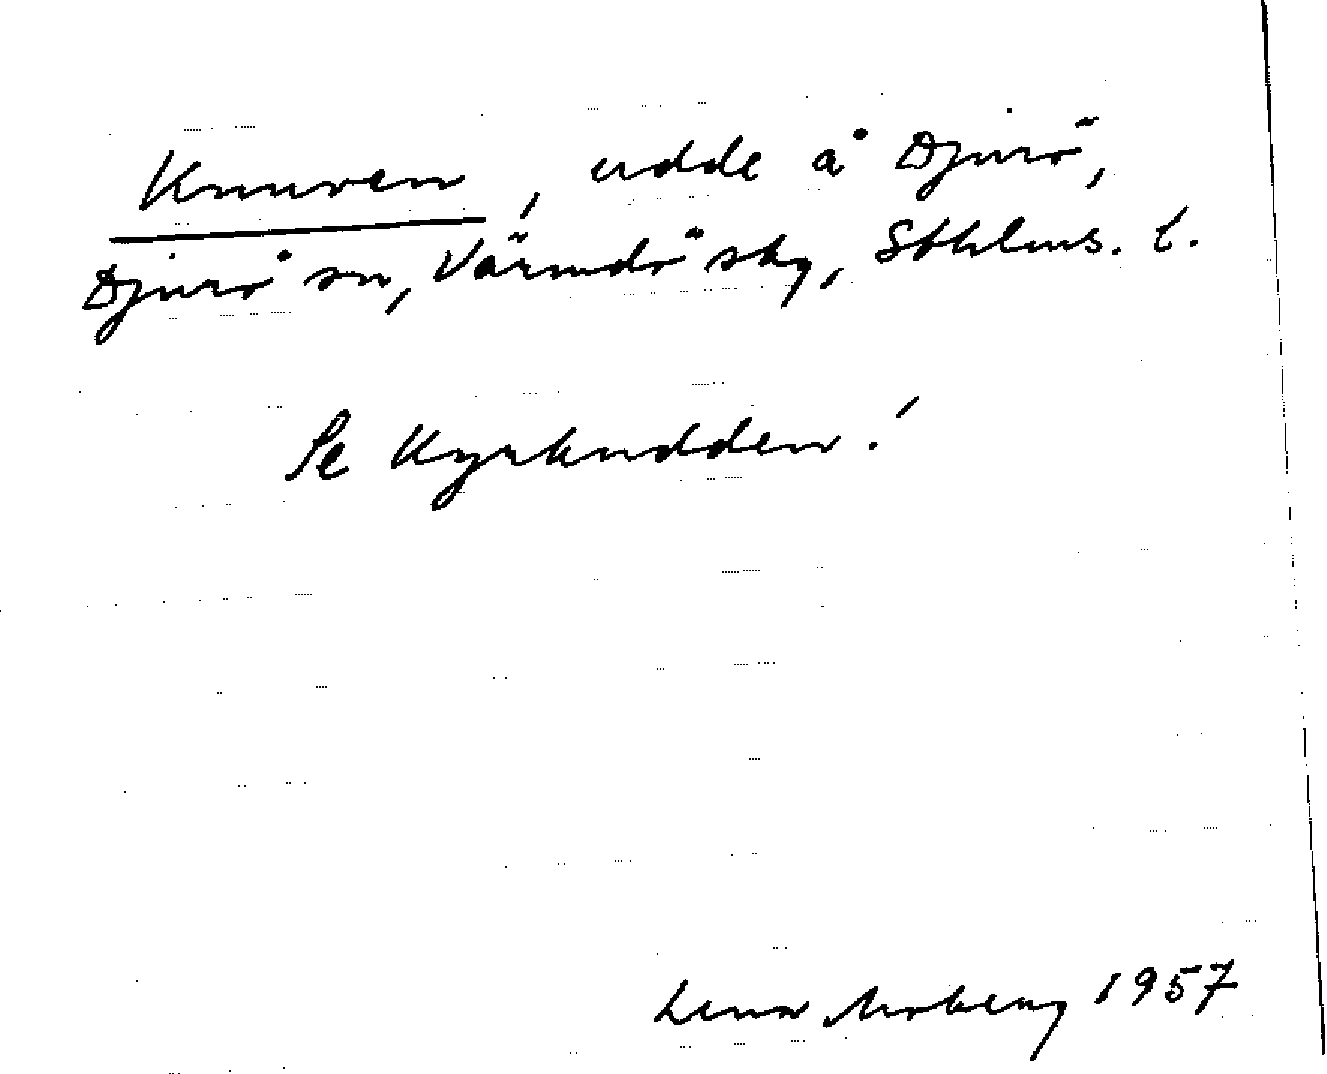 Knuven, udde å Djurö,
Djurö sn, Värmdö skg, Sthlms. l.
Se Kyrkudden!
Lena Moberg 1957